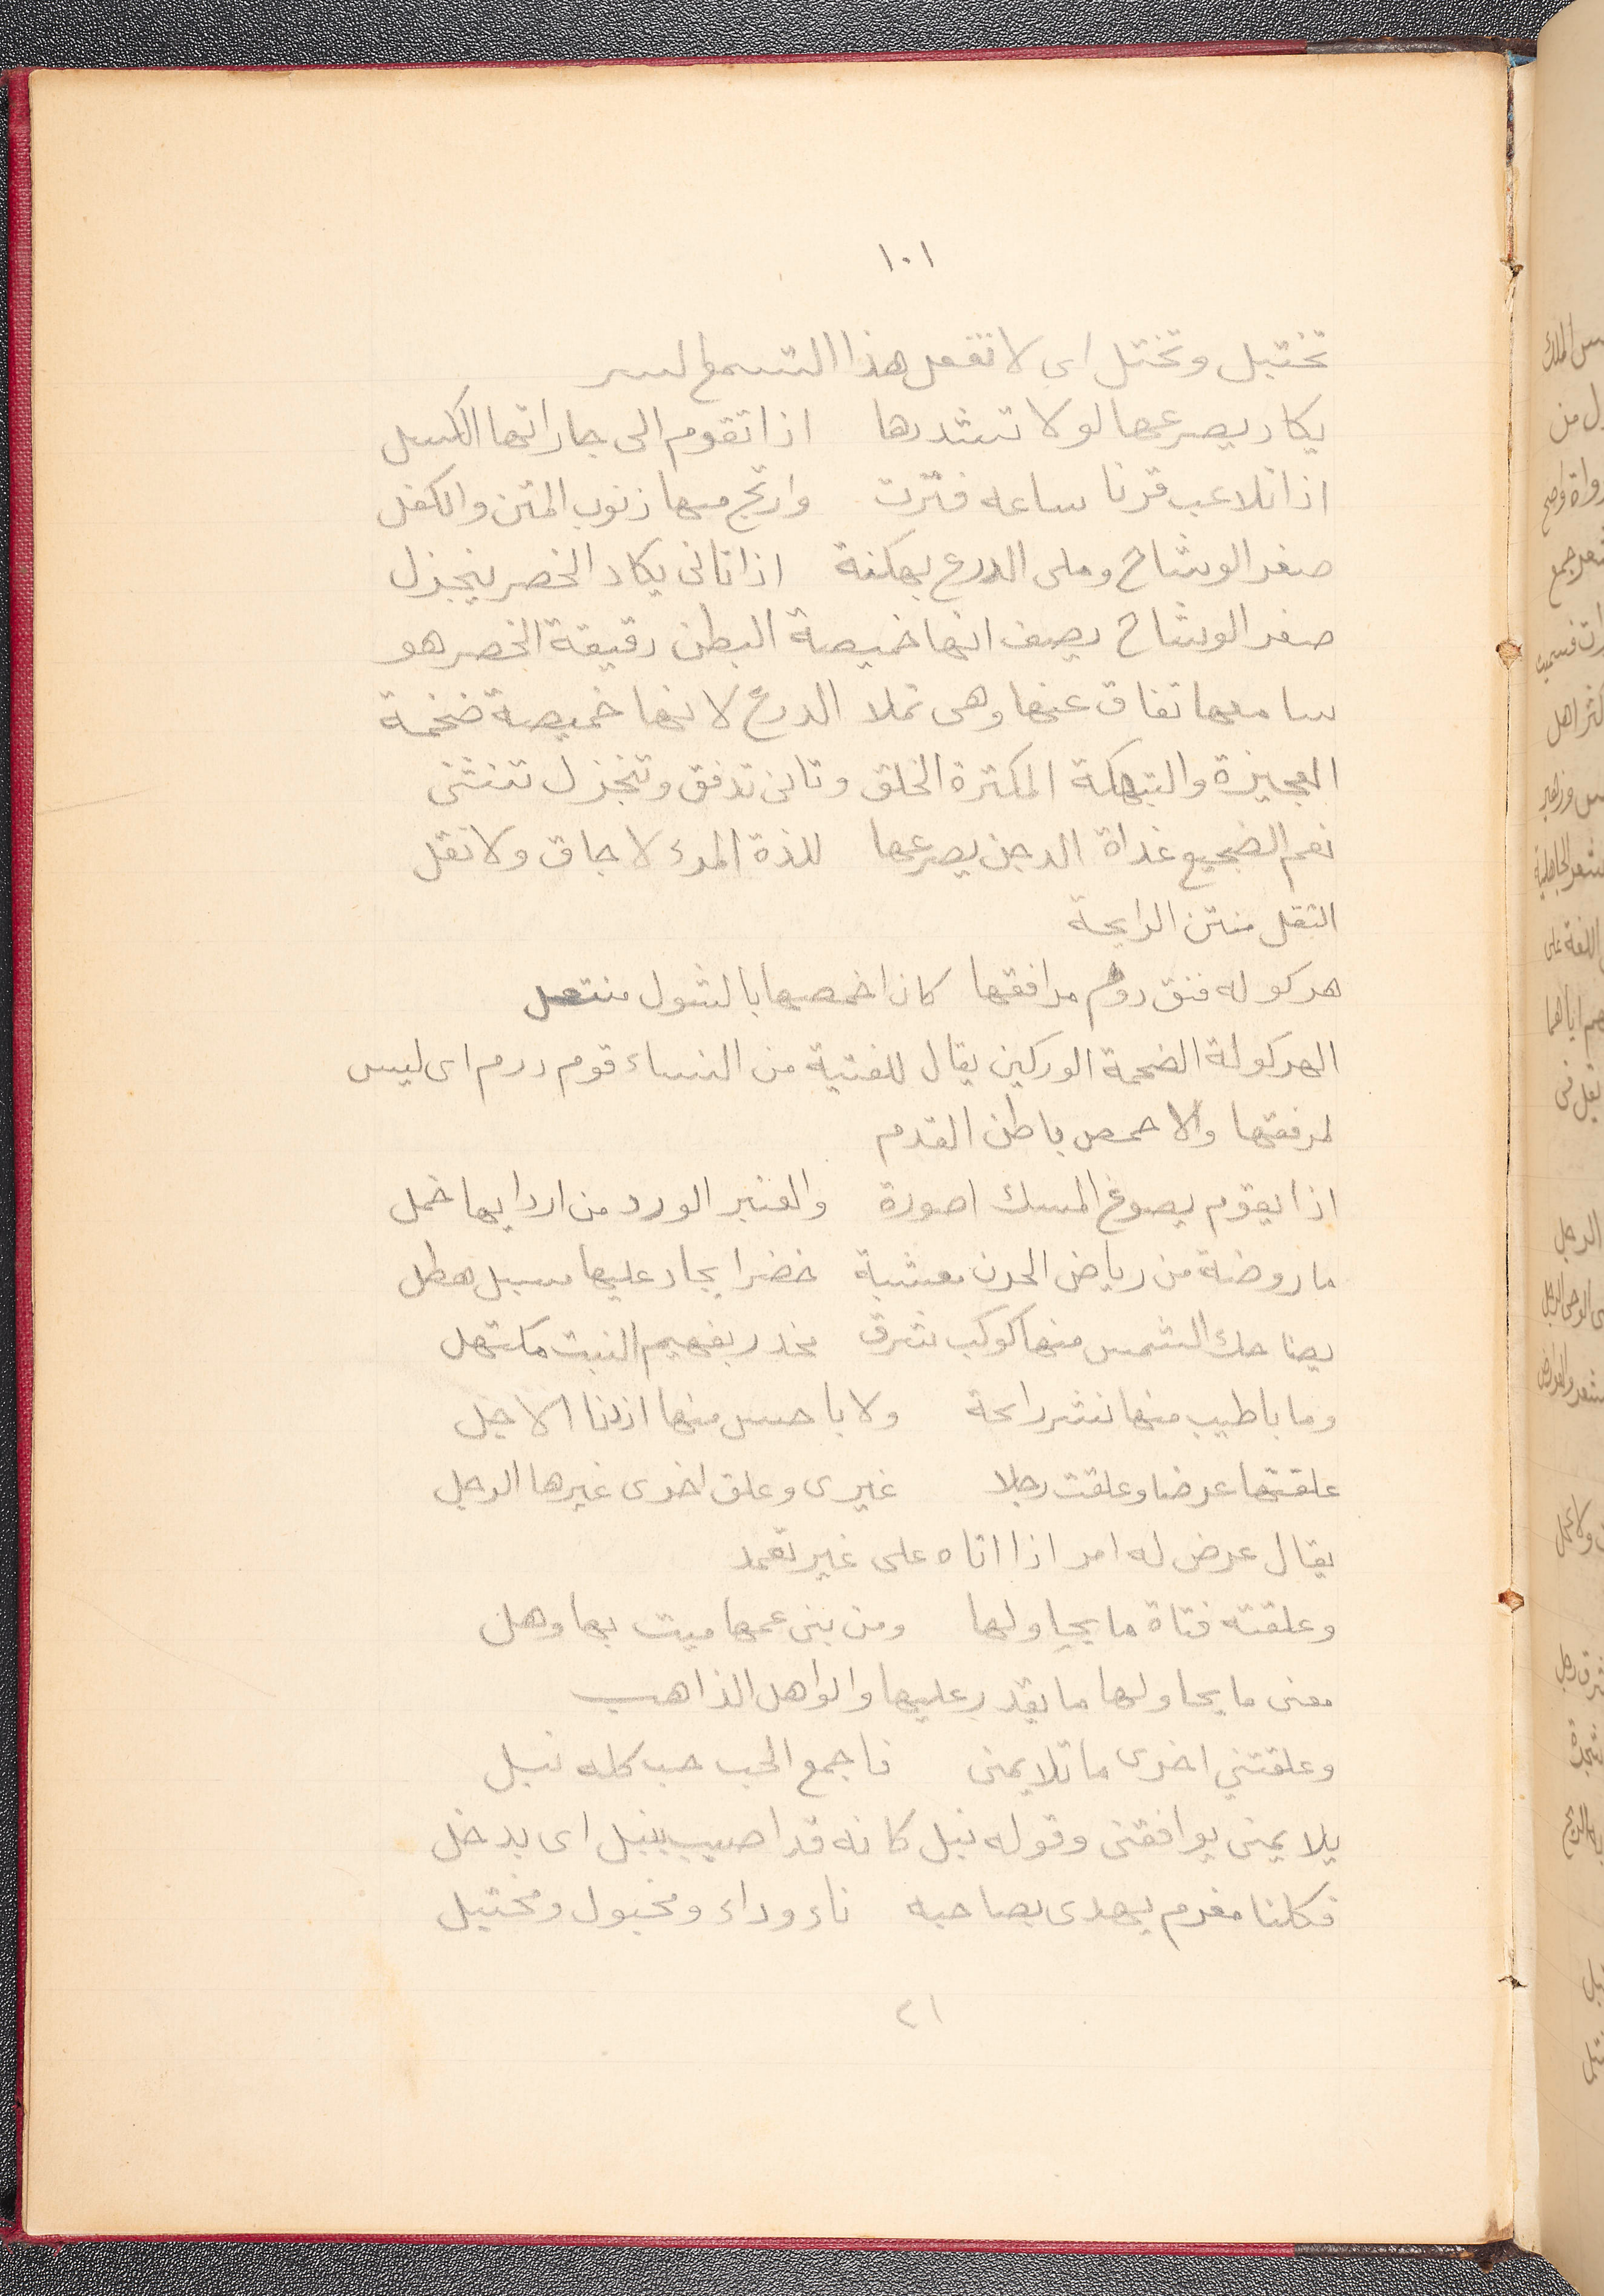 ١٠١
تختيل وتختل اى لا تفعل هذا التسمع لسر
يكاد يصرعها لولا تشددها اذا تقوم الى جاراتها الكسل
اذا تلاعب قرنا ساعه فترت وارتج منها زنوب المتن والكفل
صفر الوشاح وملى الدرع بهكنة اذا تانى يكاد الخصر ينجزل
صفر الوشاح يصف انها خميصة البطن دقيقة الخصر هو
سا معها تفاق عنها وهى تملا الدرع لانها خميصة ضخمة
العجيزة والتبهكة المكتزة الخلق وتانى تدفق وتنجزل تنثنى
نعم الضجيع غداة الدجن يصرعها للذة المرء لا جاق ولا تقل
التقل منتن الرايحة
هركوله فنق دوم مرافقها كان اخمصها بالشول منتعل
الهركولة الضخمة الوركين يقال للفتية من النساء قوم ددم اى ليس
لمرفقها والاحمص باطن القدم
اذا يقوم يصوغ المسك اصورة والعنبر الورد من اردايها خمل
ما روضة من رياض الحرن معشبة خضرا يجاد عليها مسبل هطل
يضاحك الشمس منها كوكب شرق مخدر بفهيم النبت مكتهل
وما باطيب منها نشر رائحة ولا باحسن منها اذ دنا الاجل
علقتها عرضا وعلقت رجلا غيرى وعلق اخرى غيرها الرجل
يقال عرض له امر اذا اتاه على غير تعمد
وعلقته فتاة ما يحاولها ومن بنى عمها ميت بها وهل
معنى ما يحاولها ما يقدر عليها والواهل الذاهب
وعلقتني اخرى ما تلايمنى فاجمع الحب حب كله تبل
يلايمنى يوافقنى وقوله تبل كانه قد اصيب بتبل اى بدخل
فكلنا مغرم يهدى بصاحبه ناء وداء ومخبول ومختبل
٢١